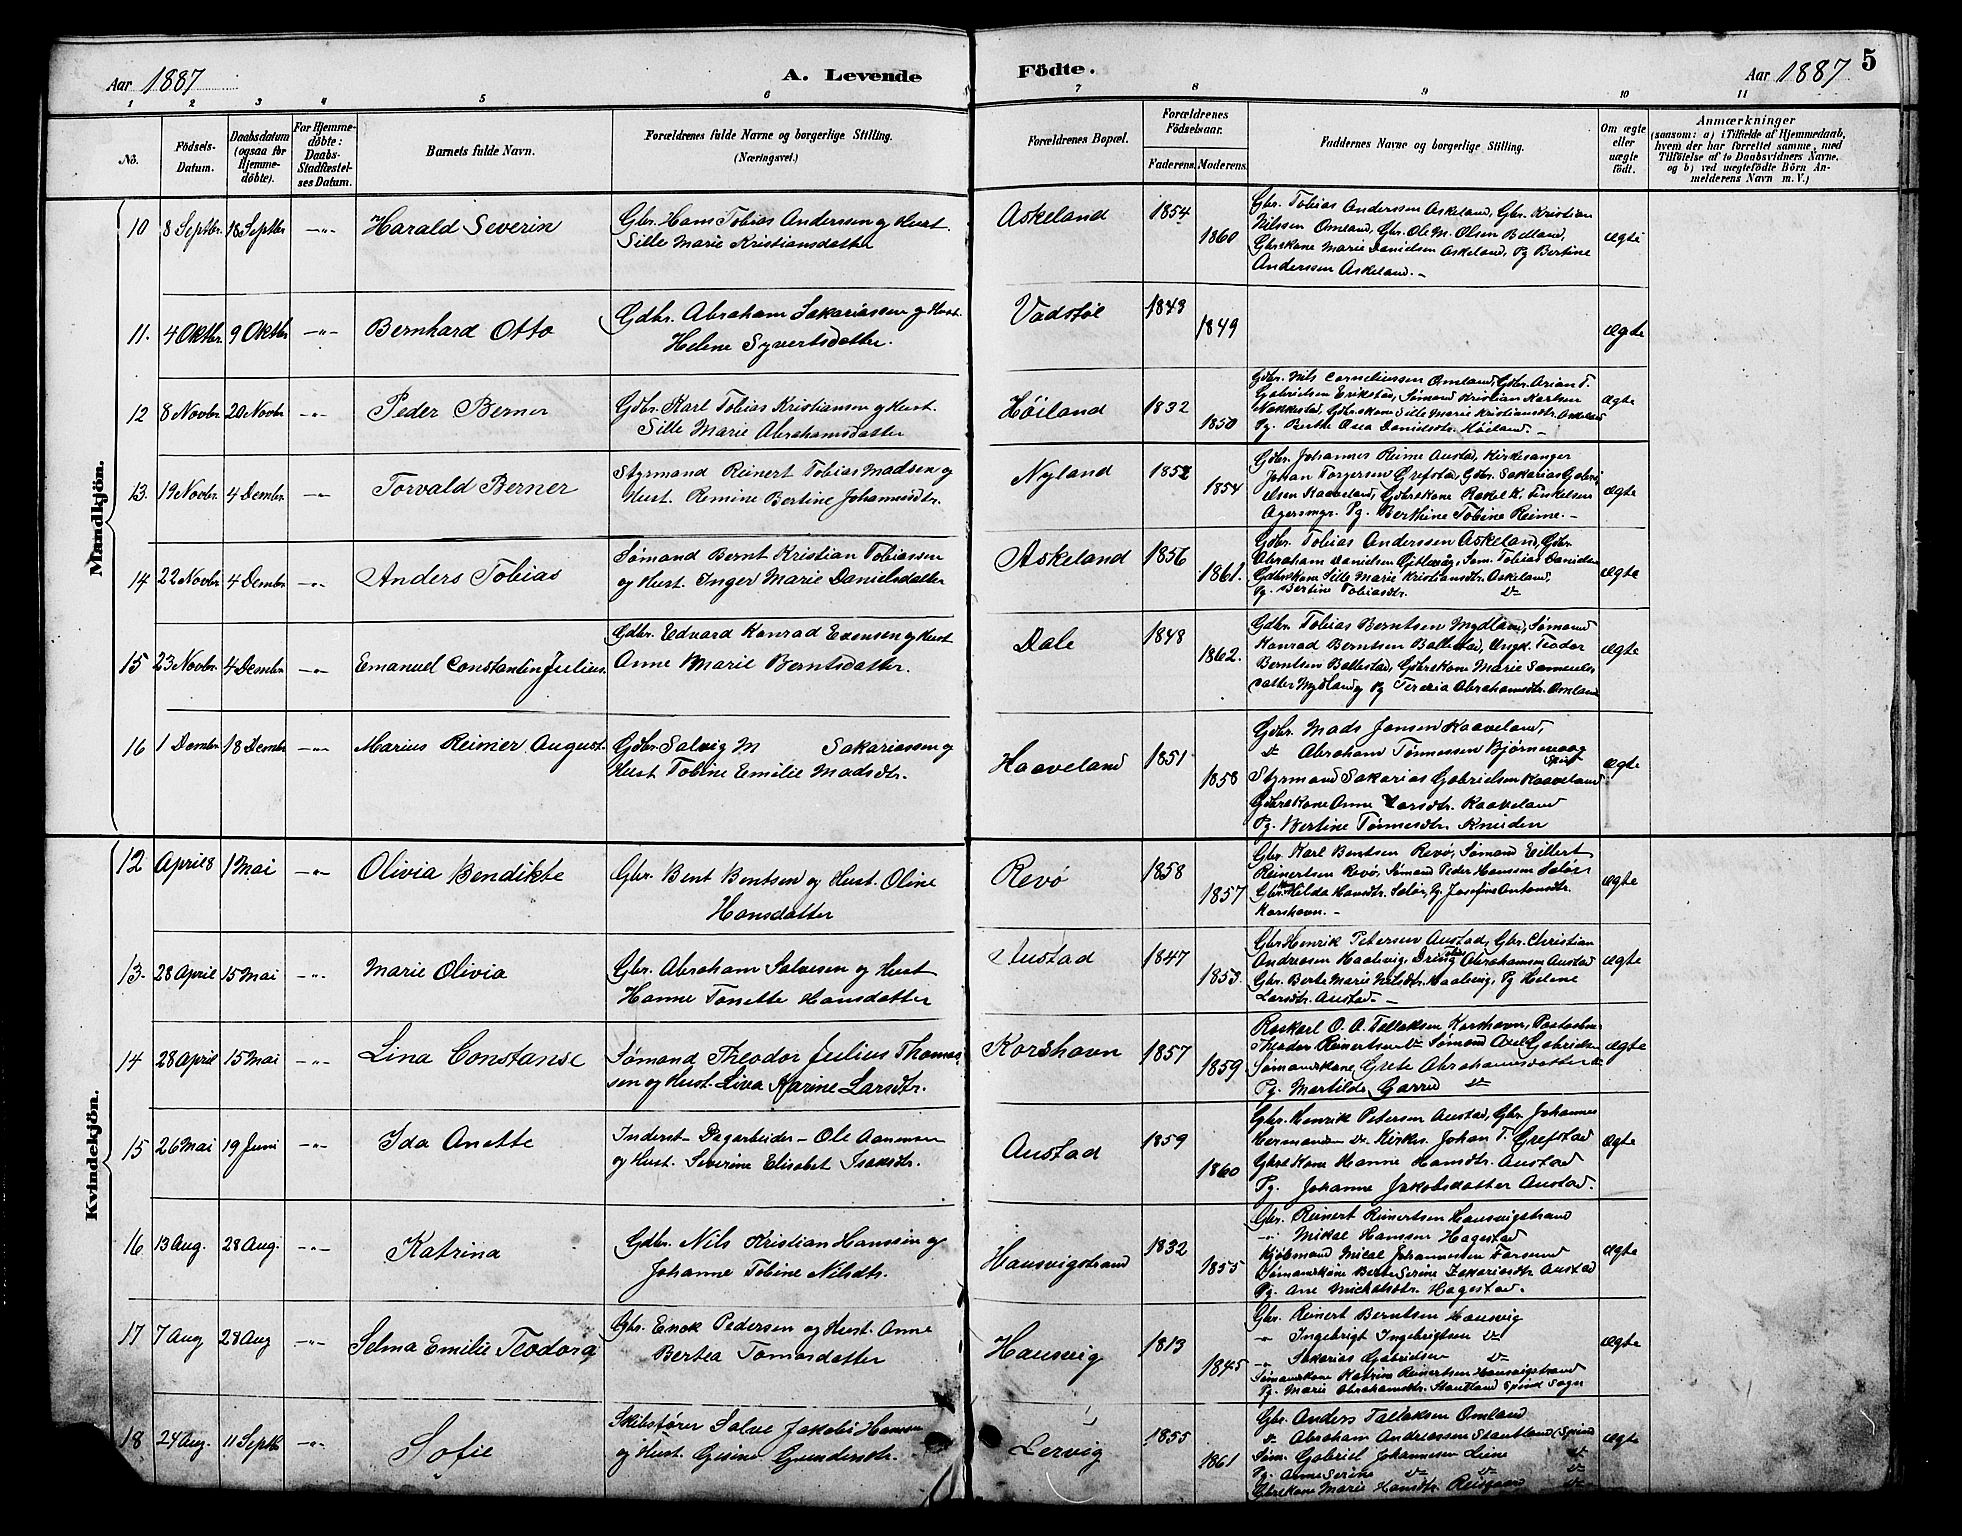 Aar 1887
A. Levende
Födte.
Aar 1887
5
1 2 3 4 5 6 7 8 9 10 11
No.
Födsels-
Datum.
Daabsdatum
(ogsaa for
Hjemme-
döbte).
For Hjemme-
döbte:
Daabs-
Stadfæstel-
ses Datum.
Barnets fulde Navn.
Forældrenes fulde Navne og borgerlige Stilling.
(Næringsvei.)
Forældrenes Bopæl.
Forældrenes
Födselsaar.
Faderens. Moderens.
Faddernes Navne og borgerlige Stilling.
Om ægte
eller
uægte
födt.
Anmærkninger
(saasom: a) i Tilfælde af Hjemmedaab,
hvem der har forrettet samme, med
Tilföielse af to Daabsvidners Navne,
og b) ved uægtefödte Börn An-
melderens Navn m. V.)
Mandkjön.
10 8 Septbr. 18 Septbr. -"- Harald Severin
Gbr. Hans Tobias Anderssen og Hust.
Sille Marie Kristiansdatter
Askeland 1854 1860
Gbr. Tobias Anderssen Askeland, Gbr. Kristian
Nilssen Omland, Gbr. Ole M. Olsen Betland,
Gbrskone Marie Danielsen Askeland, Pg Bertine
Anderssen Askeland. -
ægte
11. 4 Oktbr. 9 Oktbr. -"- Bernhard Otto
Gdbr. Abraham Sakariassen og Hust.
Helene Syvertsdatter.
Vadstøl 1843 1849
ægte
12 8 Novbr. 20 Novbr. -"- Peder Berner
Gdbr. Karl Tobias Kristiansen og Hust.
Sille Marie Abrahamsdatter
Høiland 1832 1850
Gdbr. Nils Corneliussen Omland, Gdbr. Arian T.
Gabrielsen Erikstad, Sømand Kristian Karlsen
Nakkestad, Gdbrskone Sille Marie Kristiansdtr. Askeland
Pg. Berthe Danielsdtr. Høiland. -
ægte
13. 19 Novbr. 4 Dembr. -"- Torvald Berner
Styrmand Reinert Tobias Madsen og
Hust. Remine Bertine Johannesdtr.
Nyland 1852 1854
Gdbr. Johannes Reime Austad, Kirkesanger
Johan Torgersen Grefstad, Gdbr. Sakarias Gabri-
elsen Kaaveland, Gdbrskone Rakel K. Finkelsen
Agersmyr. Pg. Berthine Tobine Reime. -
ægte
14 22 Novbr. 4 Dembr. -"- Anders Tobias
Sømand Bernt Kristian Tobiassen
og Hust. Inger Marie Danielsdatter
Askeland 1856 1861.
Gdbr. Tobias Anderssen Askeland, Gbr.
Abraham Danielsen Gitlevåg, Søm. Tobias Danielsen
Gdbrskone Sille Marie Kristiansdtr. Askeland,
Pg. Bertine Tobiasdtr.
ægte
15 23 Novbr. 4 Dembr. -"- Emanuel Constantin Julius.
Gdbr. Edvard Konrad Evensen og Hust
Anne Marie Berntsdatter.
Dale 1848 1862.
Gdbr. Tobias Berntsen Mydland, Sømand
Konrad Berntsen Ballestad, Ungk. Teodor
Berntsen Ballestad, Gdbrskone Marie Samuels-
datter Mydland og Pg Teresia Abrahamsdtr. Omland
ægte
16 1 Dembr. 18 Dembr. -"- Marius Reimer August.
Gdbr. Salvig M Sakariassen og
Hust Tobine Emilie Madsdtr.
Haaveland 1851 1858
Gdbr. Mads Jansen Kaaveland,
Abraham Tønnessen Bjørnevaag
Spind
Styrmand Sakarias Gabrielsen Kaaveland
Gdbrskone Anne Larsdtr. Kaaveland
Pg. Bertine Tønnesdtr. Knuden
ægte
Kvindekjön.
12 April 8 1 Mai -"- Olivia Bendikte
Gbr. Bent Bentsen og Hust. Oline
Hansdatter
Revø 1858 1857
Gbr. Karl Bentsen Revø, Sømand Eilert
Reinertsen Revø, Sømand Peder Hanssen Seløer
Gbr. Hilda Hansdtr. Seløer, Pg. Josefine Antonsdtr.
Korshavn. -
ægte
13. 28 April 15 Mai -"- Marie Olivia
Gbr. Abraham Salvesen og Hust
Hanne Tonette Hansdatter
Austad 1847 1853.
Gbr. Henrik Petersen Austad, Gbr. Christian
Andresen Kaalevig, Dreng Abrahamsen Austad
Gbr. Berte Marie Nilsdtr. Kaalevig, Pg Helene
Larsdtr. Austad. -
ægte
14 28 April 15 Mai -"- Lina Constanse
Sømand Theodor Julius Thomas-
sen og Hust. Liva Karine Larsdtr.
Korshavn 1857 1859
O. A. Tallaksen Korshavn,
Theodor Reinertsen Sømand Axel Gabriels
Sømandskone Grete Abrahamsdatter
Pg. Martilde Garred
ægte
15 26 Mai 19 Juni -"- Ida Anette
Inderst Dagarbeider - Ole Aanonsen
og Hust. Severine Elisabet Isaksdtr.
Austad 1859 1860
Gbr. Henrik Petersen Austad, Gbr. Johannes
Hermandsen Kirkes. Johan T. Grefstad
Gbrskone Hanne Hansdtr. Austad
Pg. Johanne Jakobsdatter Austad.
ægte
16 13 Aug. 28 Aug. -"- Katrina
Gdbr. Nils Kristian Hanssen og
Johanne Tobine Nilsdtr.
Hausvigstrand 1832 1855
Gbr. Reinert Reinertsen Hausvigstrand
-"- Mikal Hanssen Hagestad
Kjøbmand Mikal Johannessen Farsund
Sømandskone Berte Serine Zakariasdtr Austad
Pg. Ane Michalsdtr. Hagestad.
ægte
17 7 Aug 28 Aug -"- Selma Emilie Teodora
Gbr. Enok Pedersen og Hust. Anne
Bertea Tomasdatter
Hausvig 1813 1845
Gbr. Reinert Berntsen Hausvig
-"- Ingebrigt Ingebrigtsen
-"- Sakarias Gabrielsen
Sømandskone Katrine Reinertsen Hausvigstrand
Pg. Marie Abrahamsdtr. Stautland Spind Sogn
ægte
18 24 Aug. 11 Septbr -"- Sofie
Skibsfører Salve Jakobi Hansen
og Hust. Gisine Gundersdtr.
Lervig 1855 1861
Gbr. Anders Tallaksen Omland
Abraham Andreassen Stautland (Spind
Søm. Gabriel Johannesen Leine
Pg. Anne Serine
Gbrskone Marie Hansdtr.
ægte